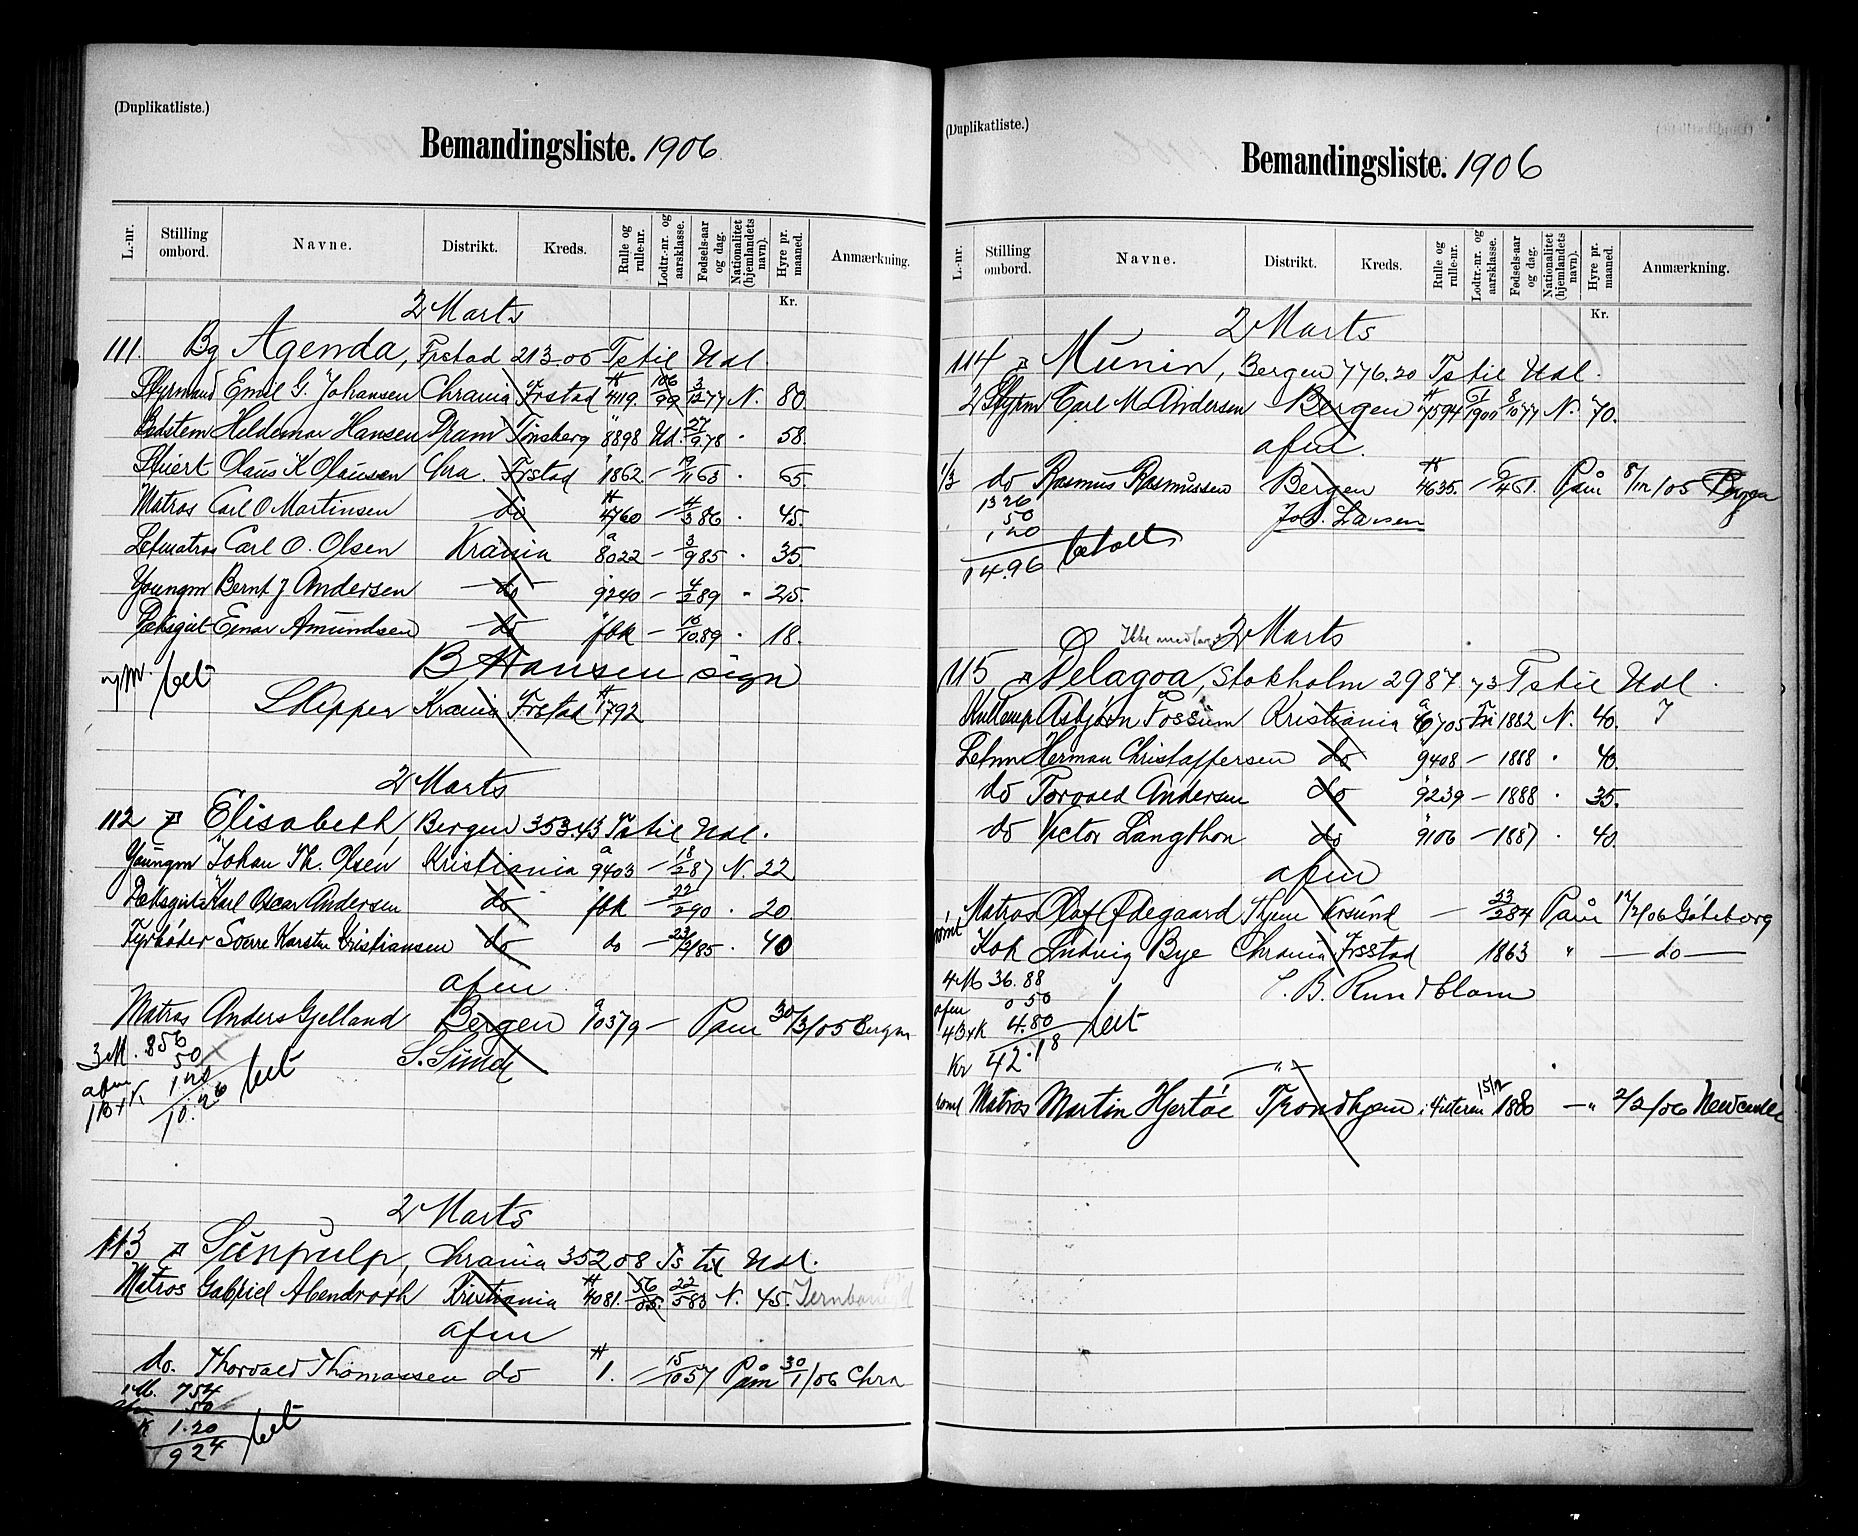 (Duplikatliste.)
Bemandingsliste. 1906
L.-nr. Stilling ombord. Navne. Distrikt. Kreds. Rulle og rulle-nr. Lodtr.-nr. og aarsklasse. Fødsels-aar og dag. Nationalitet (hjemlandets navn). Hyre pr. maaned. Anmærkning.
Kr.
2 Marts
111. Bg Agenda, Frstad 213.05 Ts til Udl.
Styrmand Emil G. Johansen Chrania Frstad 4119. 106/99 3/12 77 N. 80.
Hildemar Hansen Dram Tønsberg 8898 Ud. 27/9 78 · 58.
Stuert Olaus K Olausen Chra. Frstad 1862. — 19/11 63 · 65.
Matros Carl O Martinsen do 4760 — 4/3 86 · 45.
Letmatros Carl O. Olsen Krania 8022 — 3/9 85 · 35.
Youngm Bernt J Andersen — do 9240 — 4/2 89 · 25.
Dæksgut Einar Amundsen — do fbk — 16/10 89 · 18.
bet B Hansen sign
Skipper Krania Frstad 792
2 Marts
112 Elisabeth, Bergen 353.43 Ts til Udl.
Youngm Johan Th. Olsen Kristiania a 9403 — 18/2 87 N. 22
Dæksgut Karl Oscar Andersen do fbk — 22/2 90 · 20.
Fyrbøder Sverre Karsten Kristiansen do do — 23/12 85 · 40
afm
Matros Anders Gjelland Bergen a 10379 — Paam 30/3/05 Bergen
3 M. 856 S. Sunde
50
afm 1 20
1 B+K 10.26 bet
2 Marts
113 Sunpulp, Chrania 352 08 Ts til Udl.
Matros Gabriel Abendroth Kristiania 4081. 56/05. 22/5 83 N. 45.
afm
do. Thorvald Thomassen do 1. — 15/10 57 Paam 30/1/06 Chra
1 M. 754
50
K 1.20
924 bet
(Duplikatliste.)
Bemandingsliste. 1906
L.-nr. Stilling ombord. Navne. Distrikt. Kreds. Rulle og rulle-nr. Lodtr.-nr. og aarsklasse. Fødsels-aar og dag. Nationalitet (hjemlandets navn). Hyre pr. maaned. Anmærkning.
Kr.
2 Marts
114 Munin, Bergen 776.20 Ts til Udl.
2 Styrm Carl M Andersen Bergen 7594 8/10 77 N. 70.
afm.
1/3 do Rasmus Rasmussen Bergen 4635. — Paam 8/12/05 Bergen
13 26 Jos. Larsen
50
1 20
14.96 betalt
Ikke med 2 Marts
115 Delagoa, Stokholm 2987.73 Ts til Udl.
Kullemp Asbjørn Fossum Kristiania a 6705 Fri 1882 N. 40.
Letm Herman Christoffersen do 9408 — 1888 · 40.
do Torvald Andersen do 9239 — 1888 · 35.
do Victor Langthon do 9106 — 1887 · 40.
afm
rømt Matros Olaf Ødegaard Thjem Krsund — 23/2 84 Paam 12/2/06 Göteborg
Kok Ludvig Bye Chrania Frsstad 1863 " — do —
4 M 36.88 C. B. Rundblom
afm 0 50
4 B+K 4.80 bet
Kr 42.18
— " —
rømt Matros Martin Hjertøe Trondhjem i Hiteren 15/12 1880 — " 2/2/06 Newcastle